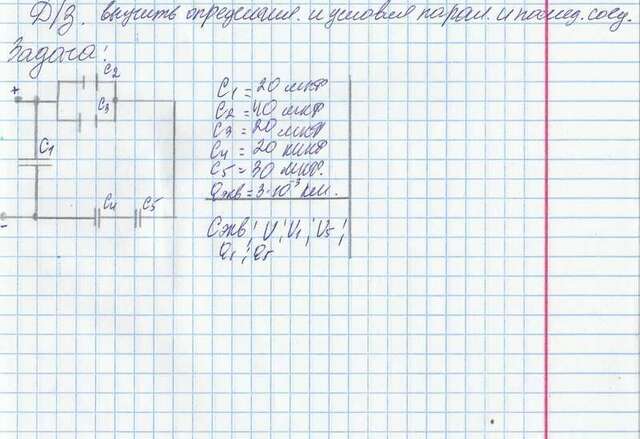 Д/З. выучить определения. и условия парал. и послед. соед.
Задача:
C2
+
C3
C1
C4 C5
-
C1 = 20 мкф
C2 = 40 мкф
C3 = 20 мкф
C4 = 20 мкф
C5 = 30 мкф.
Qэкв = 3·10⁻³ кл.
Cэкв; U; U1; U5;
Q1; Q5